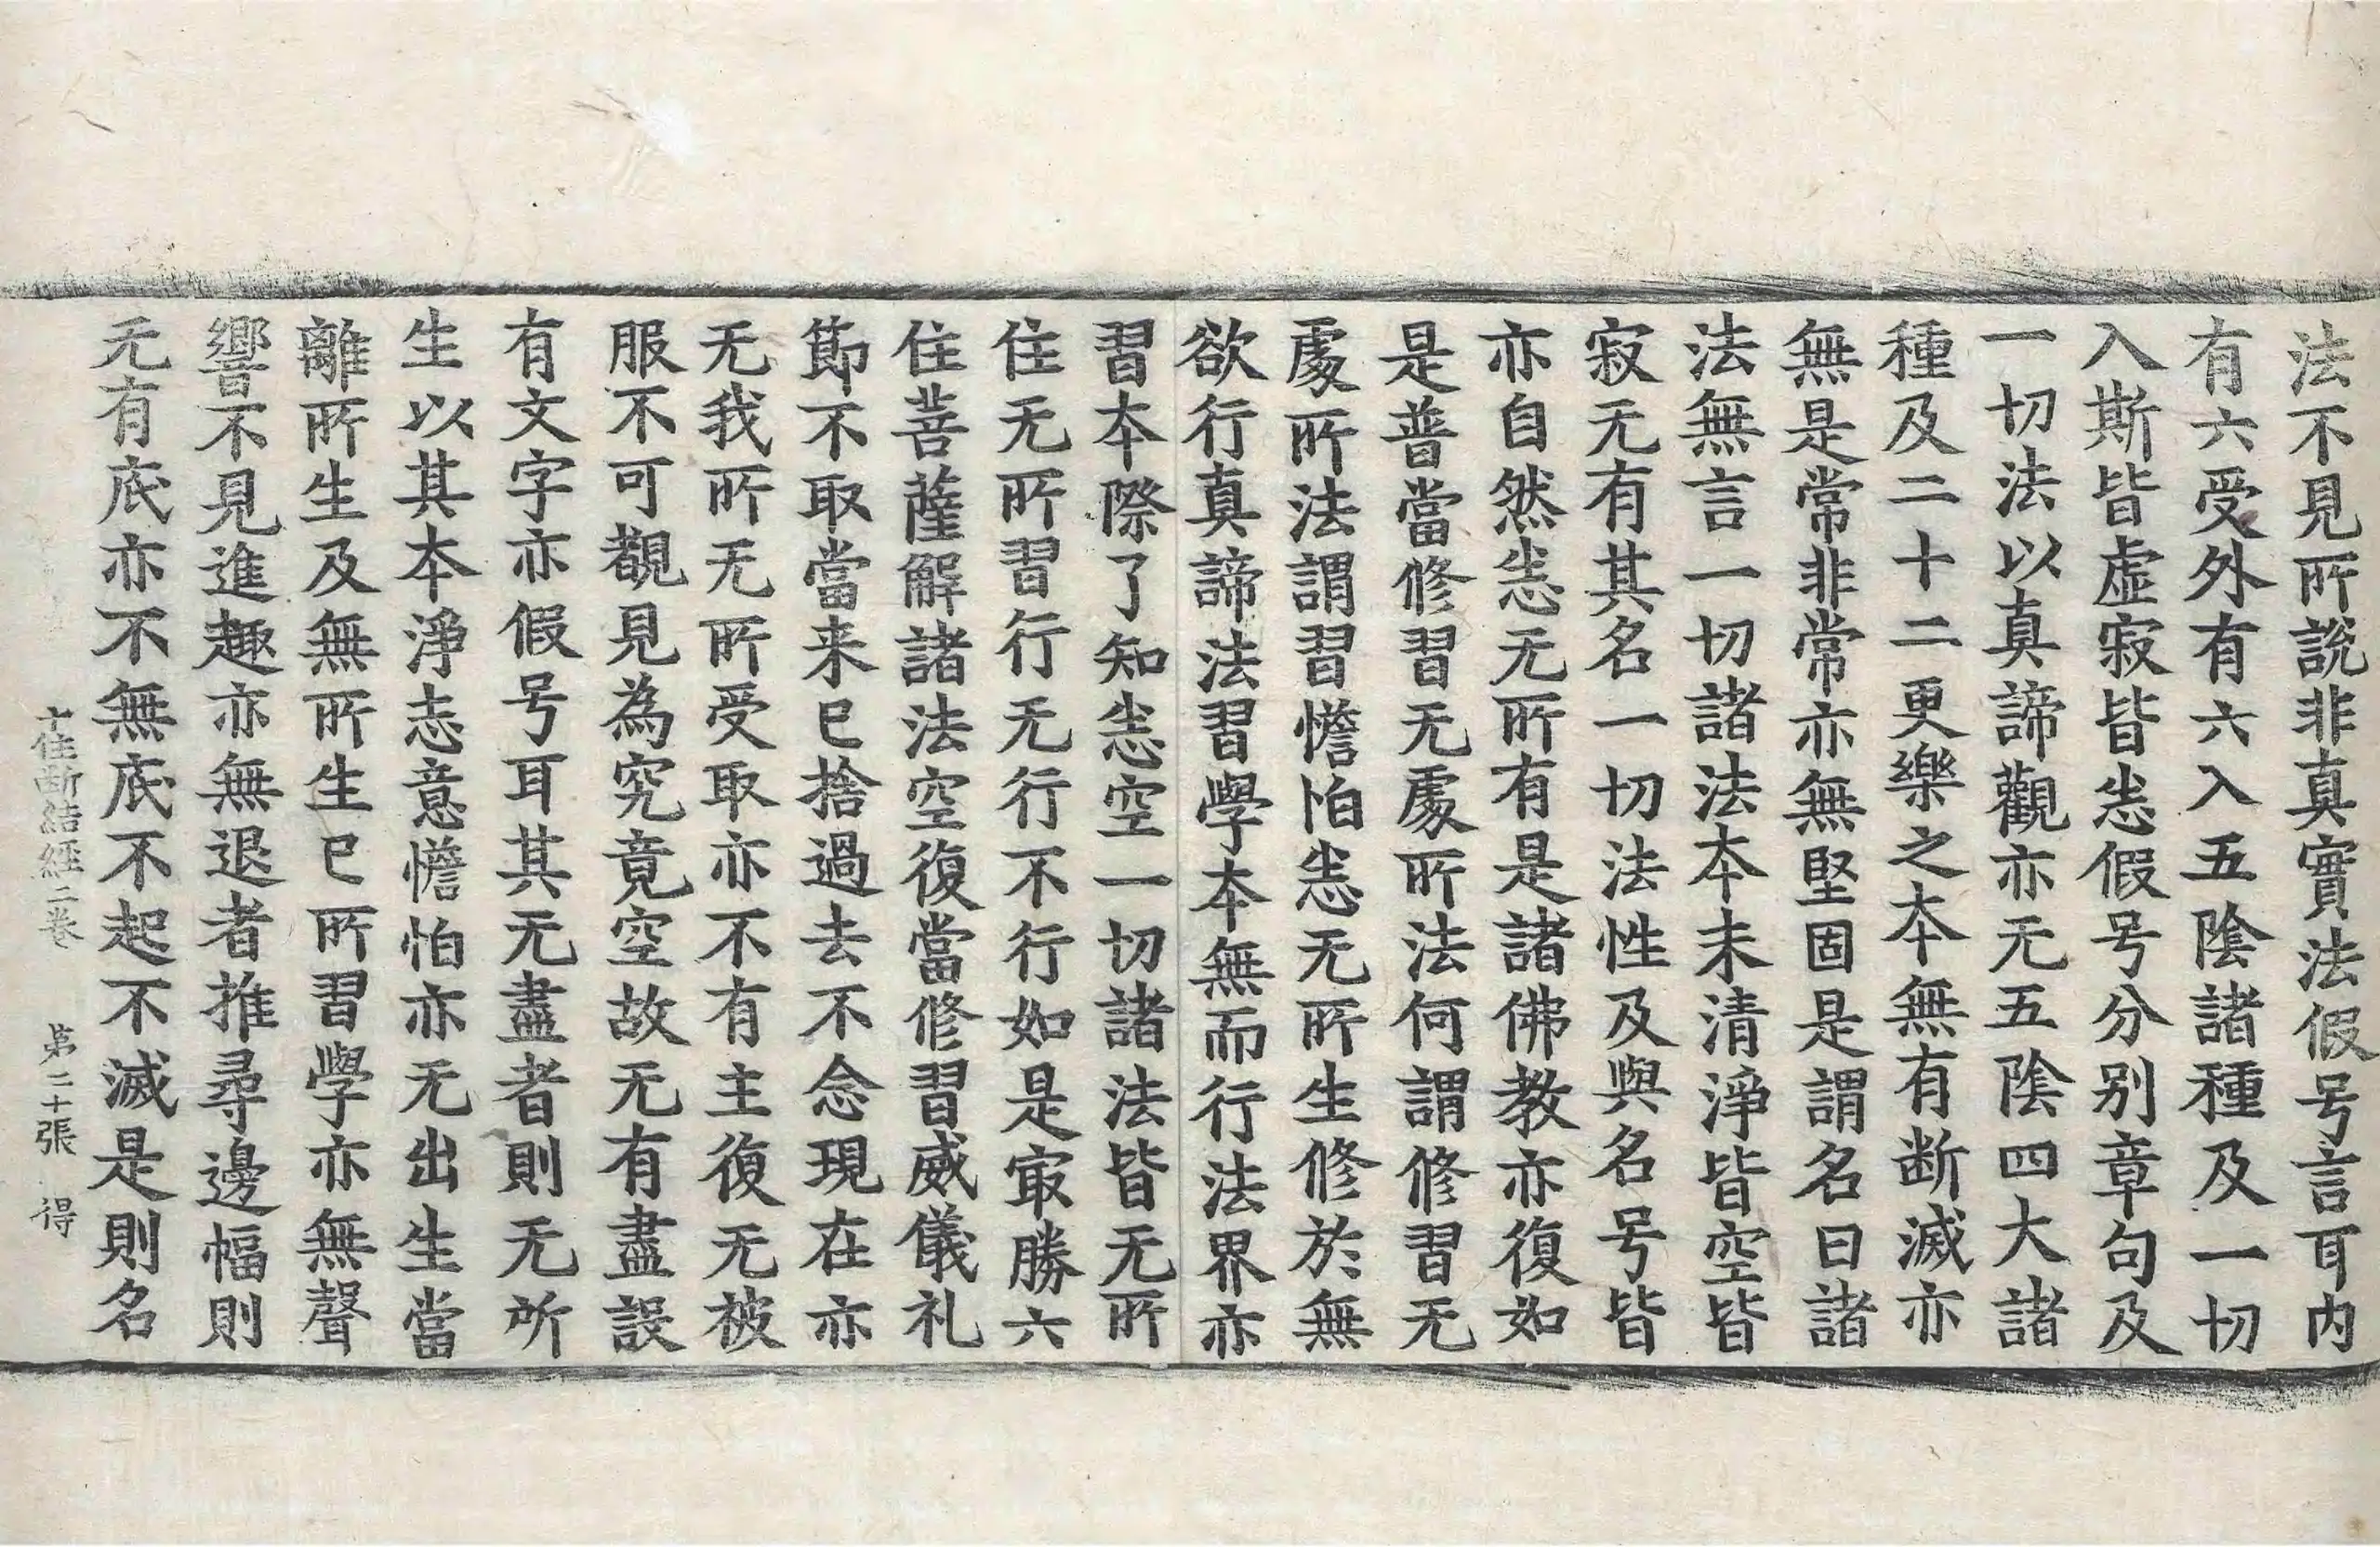 法不見所說非真實法假号言耳内
有六受外有六入五陰諸種及一切
入斯皆虛寂皆悉假号分别章句及
一切法以真諦觀亦无五陰四大諸
種及二十二更樂之本無有断滅亦
無是常非常亦無堅固是謂名曰諸
法無言一切諸法本末清淨皆空皆
寂无有其名一切法性及與名号皆
亦自然悉无所有是諸佛教亦復如
是普當修習无處所法何謂修習无
處所法謂習憺怕悉无所生修於無
欲行真諦法習學本無而行法界亦
習本際了知悉空一切諸法皆无所
住无所習行无行不行如是冣勝六
住菩薩解諸法空復當修習威儀礼
節不取當来已捨過去不念現在亦
无我所无所受取亦不有主復无被
服不可覩見為究竟空故无有盡設
有文字亦假号耳其无盡者則无所
生以其本淨志意憺怕亦无出生當
離所生及無所生已所習學亦無聲
響不見進趣亦無退者推尋邊幅則
无有底亦不無底不起不滅是則名
十住断結經二卷　第二十張　得